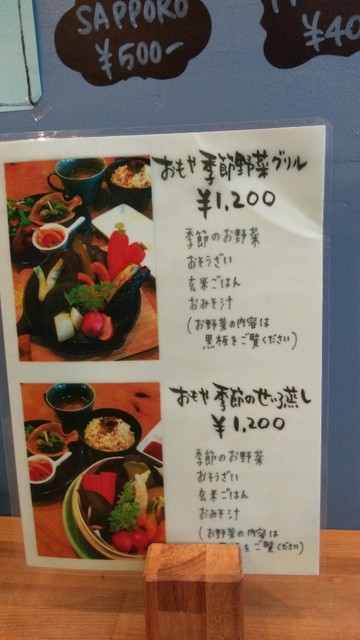 SAPPORO
¥500-
¥40
おもや 季節野菜グリル
¥1,200
季節のお野菜
おそうざい
玄米ごはん
おみそ汁
(お野菜の内容は
黒板をご覧ください)
おもや 季節のせいろ蒸し
¥1,200
季節のお野菜
おそうざい
玄米ごはん
おみそ汁
(お野菜の内容は
をご覧ください)